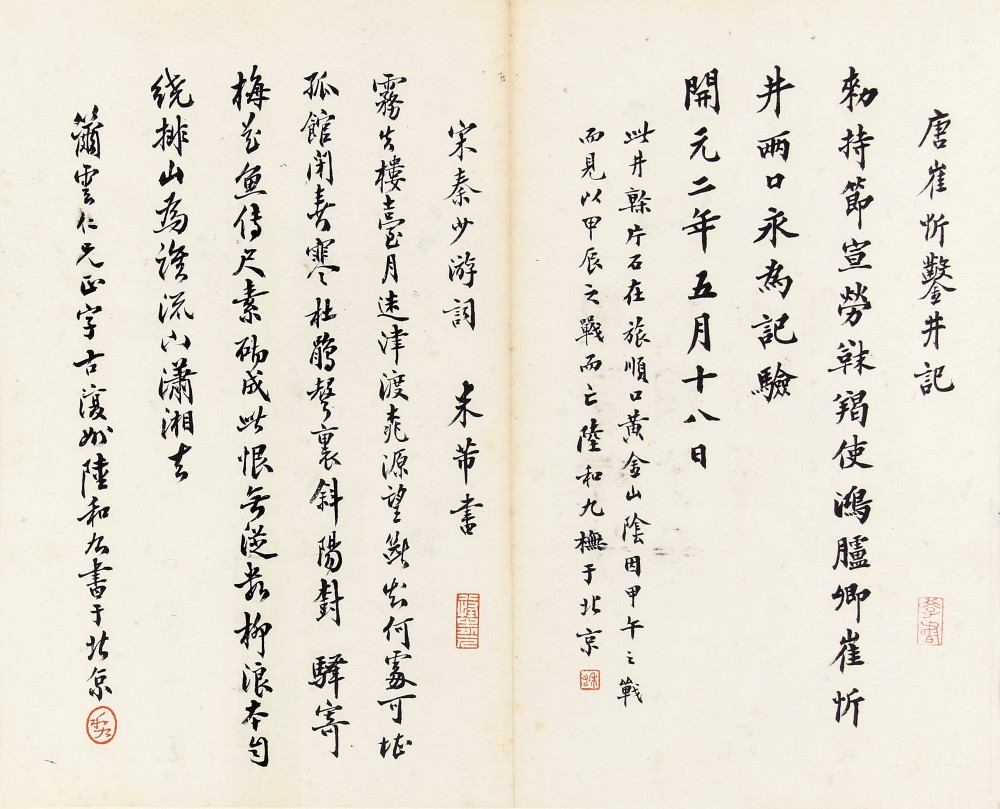 唐崔忻鑿井記
勑持節宣勞靺鞨使鴻臚卿崔忻
井兩口永為記驗
開元二年五月十八日
此井榦片石在旅順口黃金山陰因甲午之戰
而見以甲辰之戰而亡陸和九橅于北京
宋秦少游詞 米芾書
霧失樓臺月迷津渡桃源望斷知何處可堪
孤館閉春寒杜鵑聲裏斜陽樹 驛寄
梅花魚傳尺素砌成此恨無從數柳浪本自
繞排山為誰流下瀟湘去
籋雲仁兄正字古復州陸和九書于北京